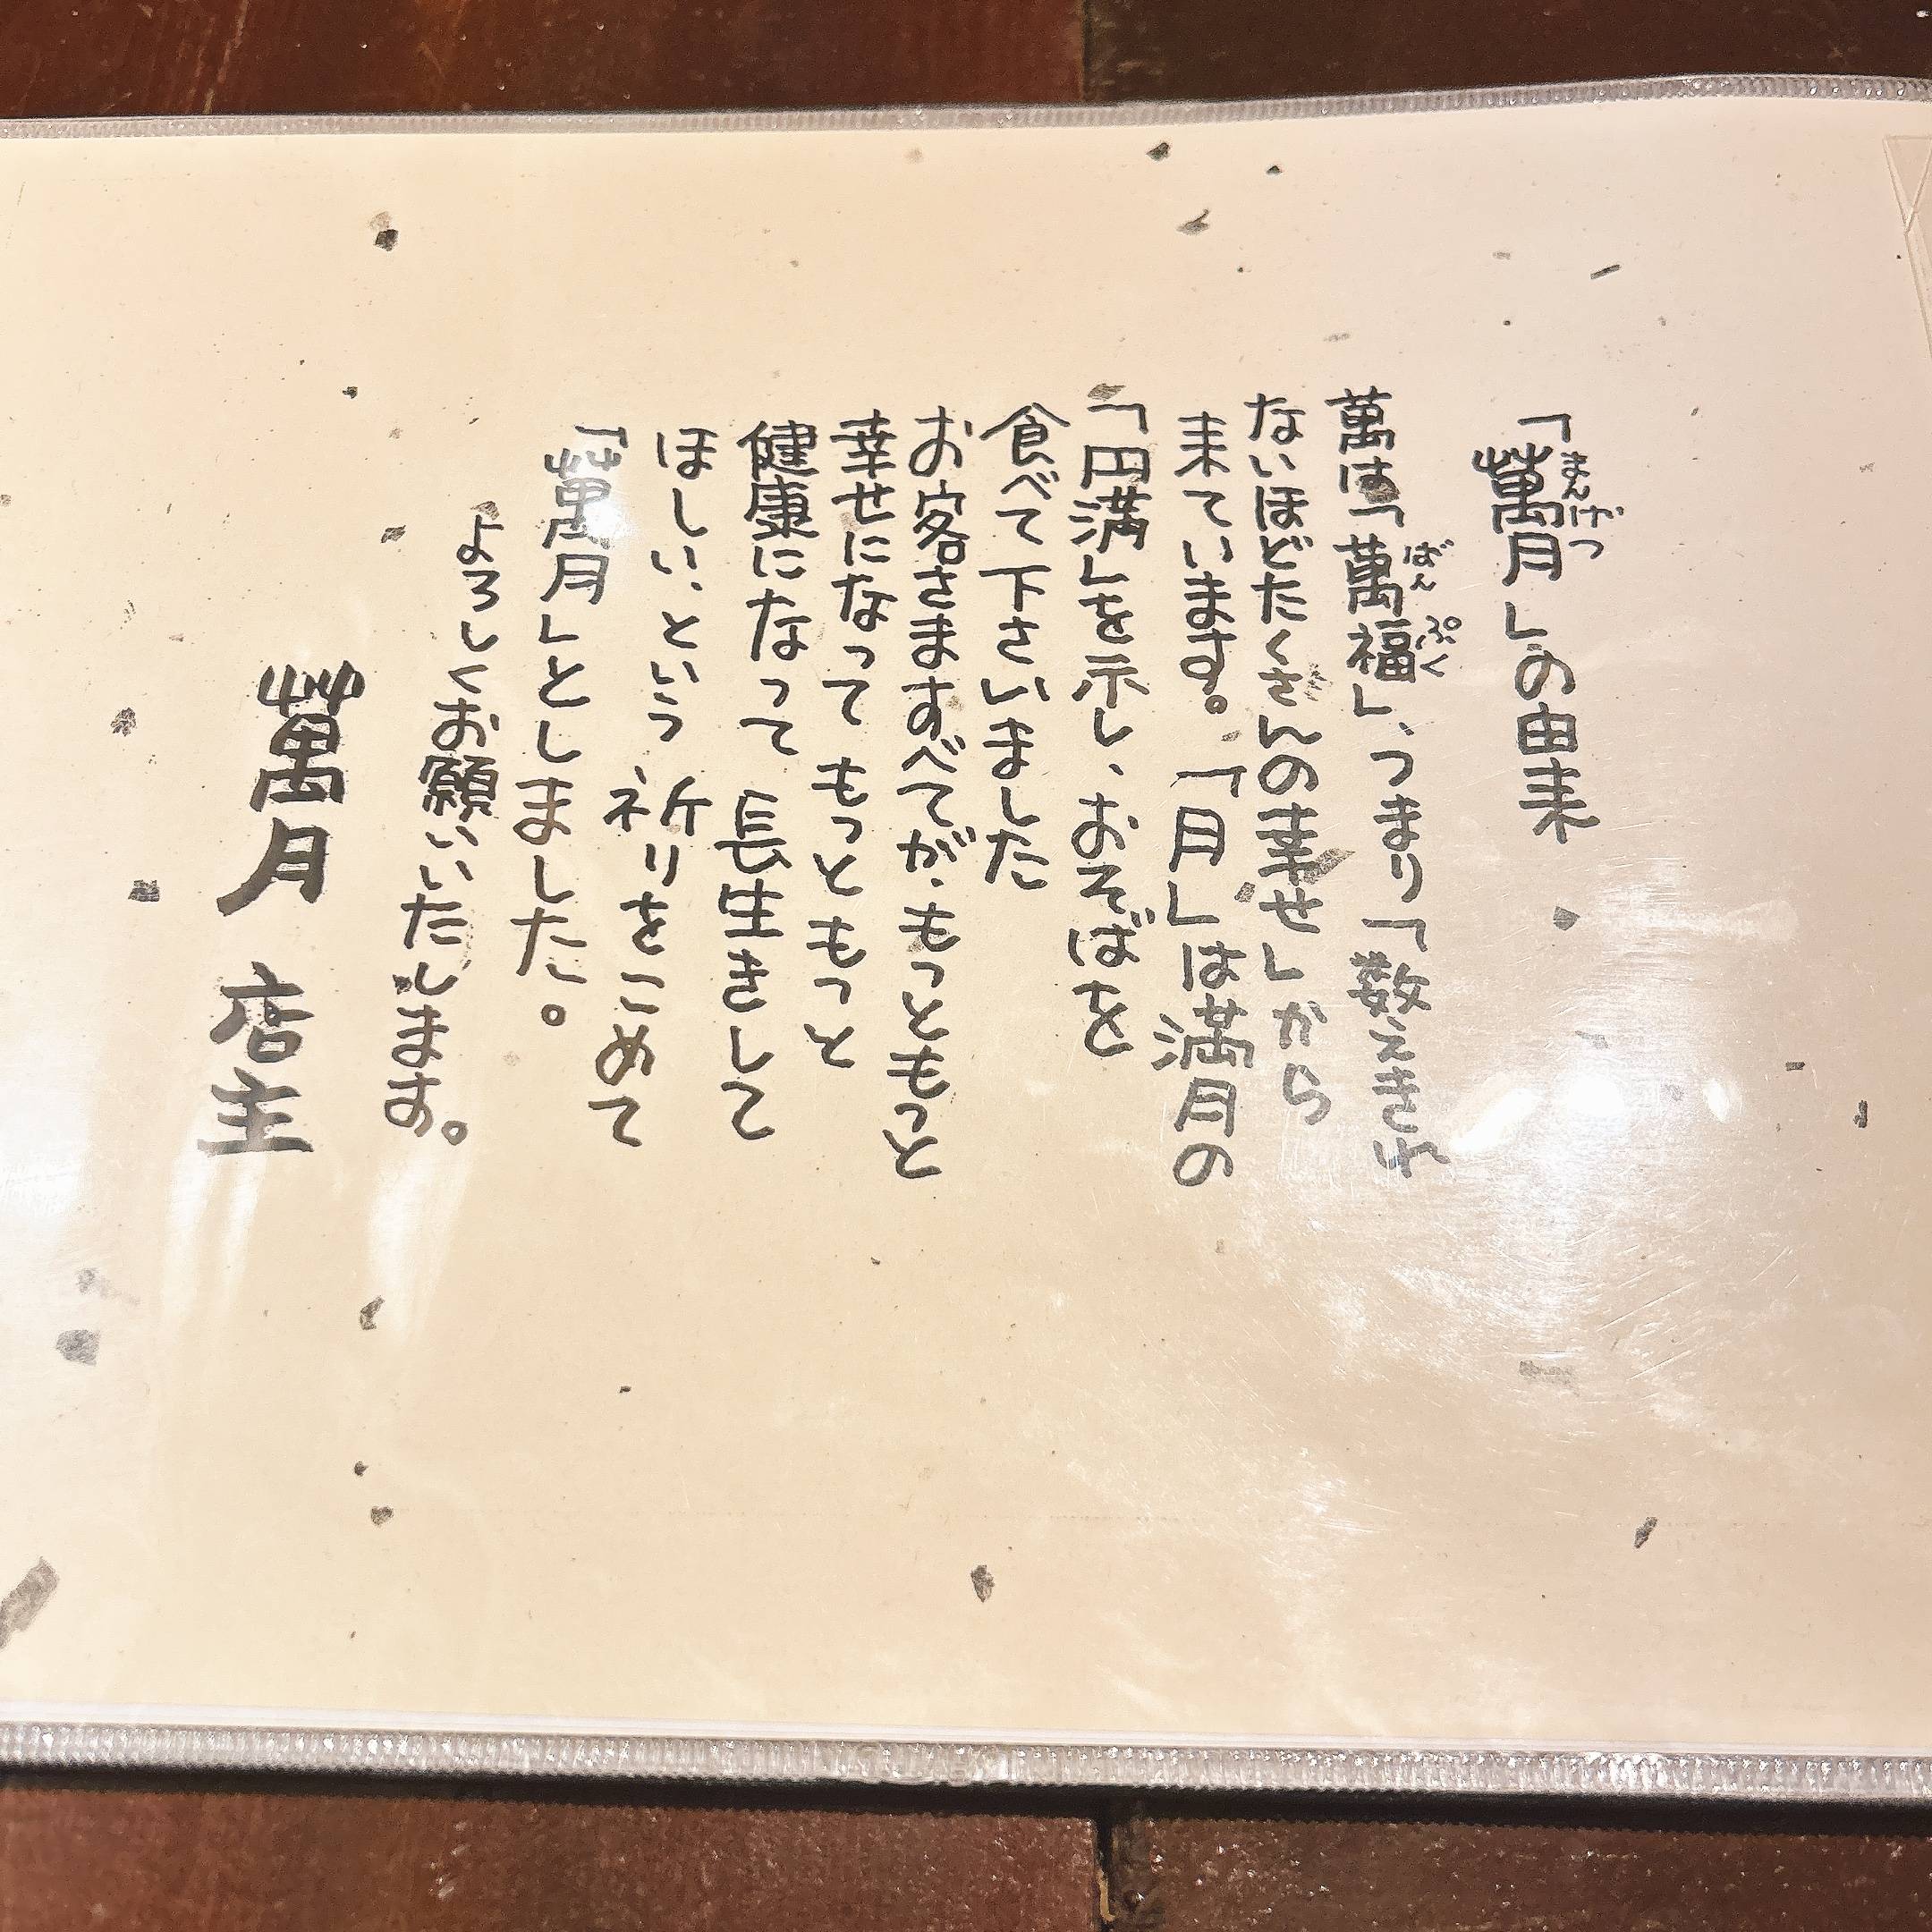 「萬月」の由来
まんげつ
萬は「萬福」、つまり「数えきれ
ばんぷく
ないほどたくさんの幸せ」から
来ています。「月」は満月の
「円満」を示し、おそばを
食べて下さいました
お客さますべてが、もっともっと
幸せになって もっともっと
健康になって 長生きして
ほしい、という、祈りをこめて
「萬月」としました。
よろしくお願いいたします。
萬月 店主